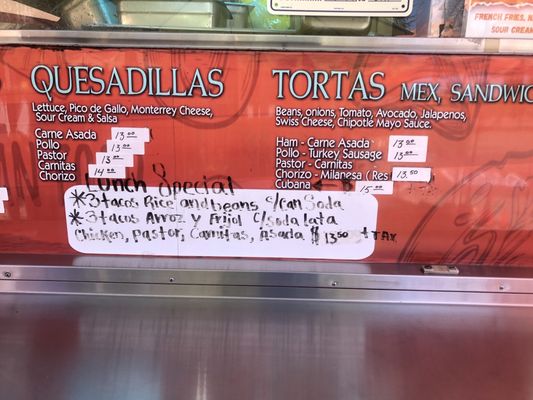 FRENCH FRIES,
SOUR CREAM
QUESADILLAS
Lettuce, Pico de Gallo, Monterrey Cheese,
Sour Cream & Salsa
Carne Asada 13.00
Pollo 13.00
Pastor 13.00
Carnitas 14.00
Chorizo
TORTAS MEX, SANDWIC
Beans, onions, Tomato, Avocado, Jalapenos,
Swiss Cheese, Chipotle Mayo Sauce.
Ham - Carne Asada 13.00
Pollo - Turkey Sausage 13.00
Pastor - Carnitas
Chorizo - Milanesa (Res 13.50
Cubana 15.00
Lunch Special
*3tacos Rice and beans c/can Soda
*3tacos Arroz y Frijol c/soda lata
Chicken, pastor, Carnitas, Asada $13.50 + TAX